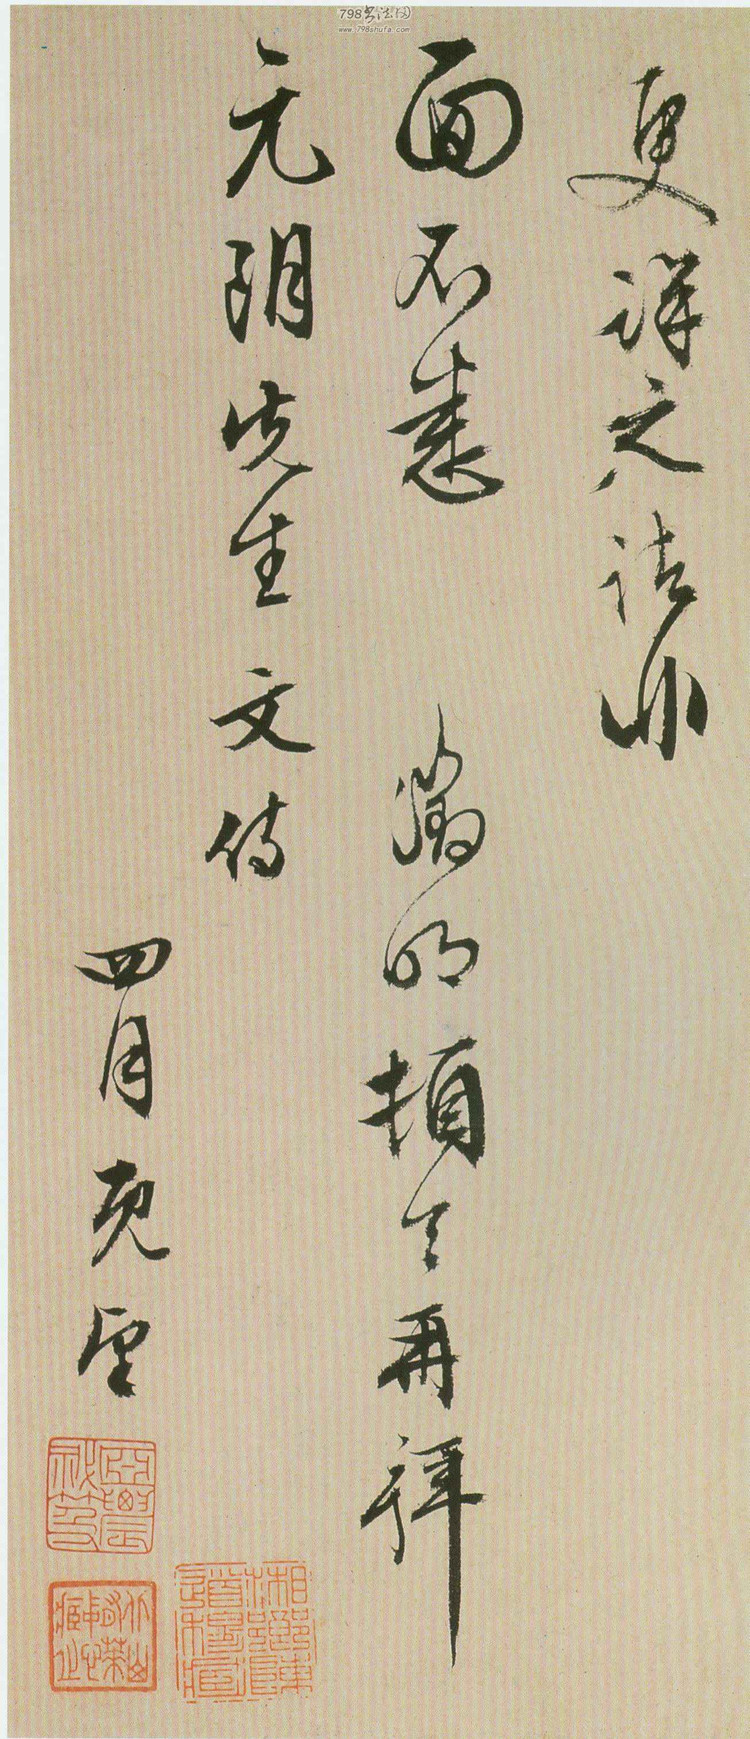 798书法网
www.798shufa.com
更详之 诘
面不悉 徵明顿首再拜
元朗先生文侍
四月既望